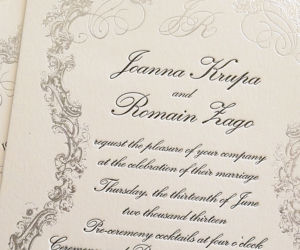 JR
Joanna Krupa
and
Romain Zago
request the pleasure of your company
at the celebration of their marriage
Thursday, the thirteenth of June
two thousand thirteen
Pre-ceremony cocktails at four o'clock
Ceremony